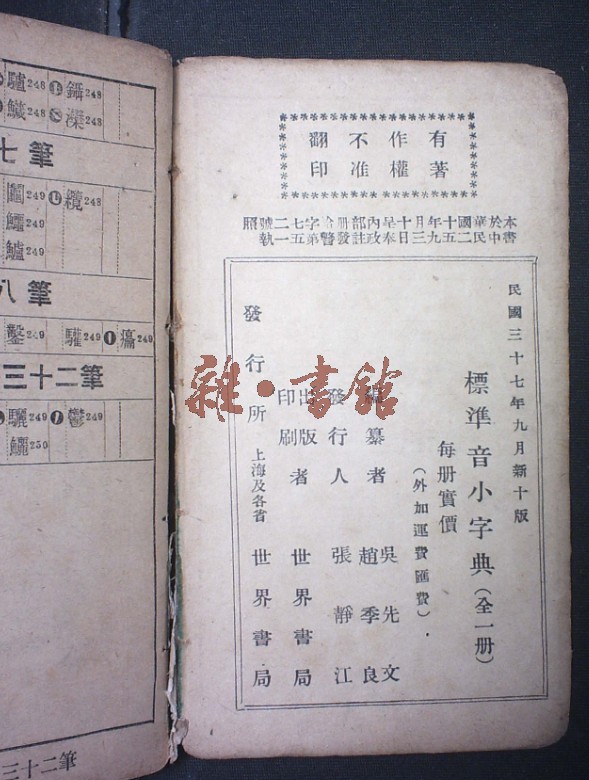 有著
作權
不准
翻印
本書於中華民國二十五年九月三十日呈奉內政部註册發給警字第七五二一號執照
民國三十七年九月新十版
標準音小字典(全一册)
每册實價
(外加運費匯費)
編纂者 吳先文 趙季良
發行人 張靜江
出版印刷者 世界書局
發行所 上海及各省 世界書局
雜·書館
驢248 鑷248
鱵248 灤248
七筆
249 纜248
鸕249
鱸249
八筆
鑿249 驩249 249
三十二筆
驪249 鬱249
鱺250
三十二筆